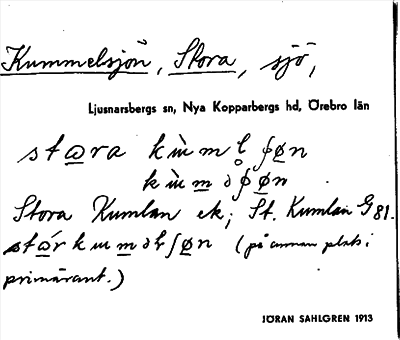 Kummelsjön, Stora, sjö,
Ljusnarsbergs sn, Nya Kopparbergs hd, Örebro län
stɷra kùml̥ ʃøn
kùm ə ʃøn
Stora Kumlan ek; St. Kumlan G 81.
stɷ́rkuməlʃøn (på annan plats i
primäruant.)
JÖRAN SAHLGREN 1913